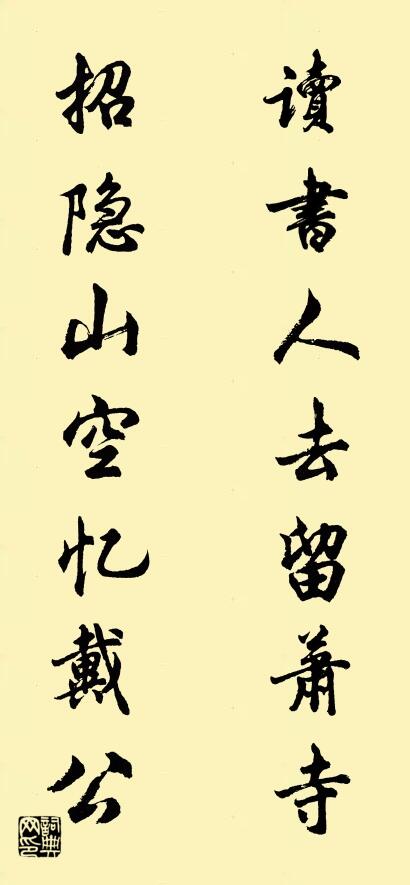 讀書人去留蕭寺
招隐山空忆戴公
詞典网印